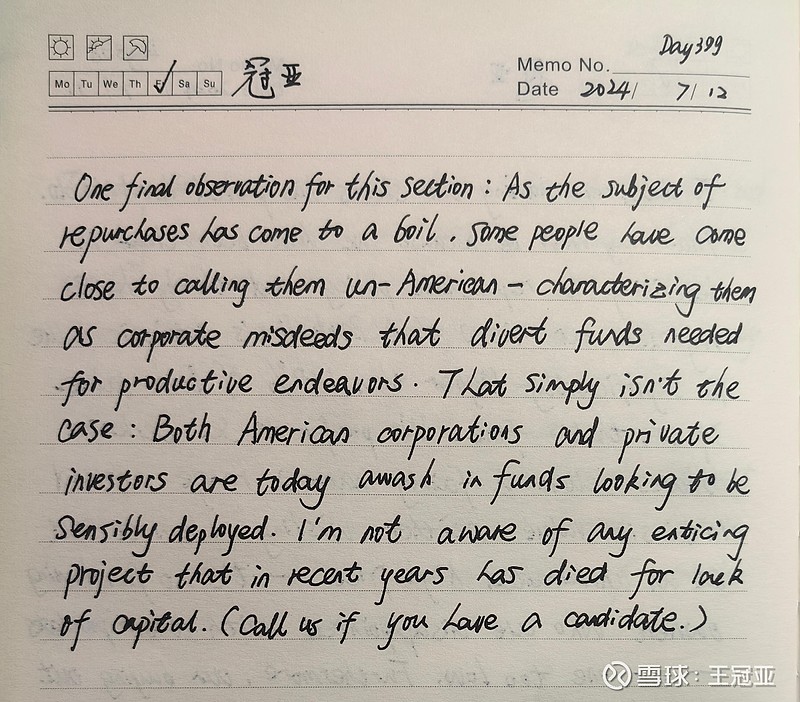 Day399
Memo No.
Mo Tu We Th Fr Sa Su 冠亚
Date 2024/ 7/ 12
One final observation for this section : As the subject of
repurchases has come to a boil. some people have come
close to calling them un-American - characterizing them
as corporate misdeeds that divert funds needed
for productive endeavors. That simply isn't the
case : Both American corporations and private
investors are today awash in funds looking to be
sensibly deployed. I'm not aware of any enticing
project that in recent years has died for lack
of capital. (Call us if you have a candidate.)
雪球：王冠亚